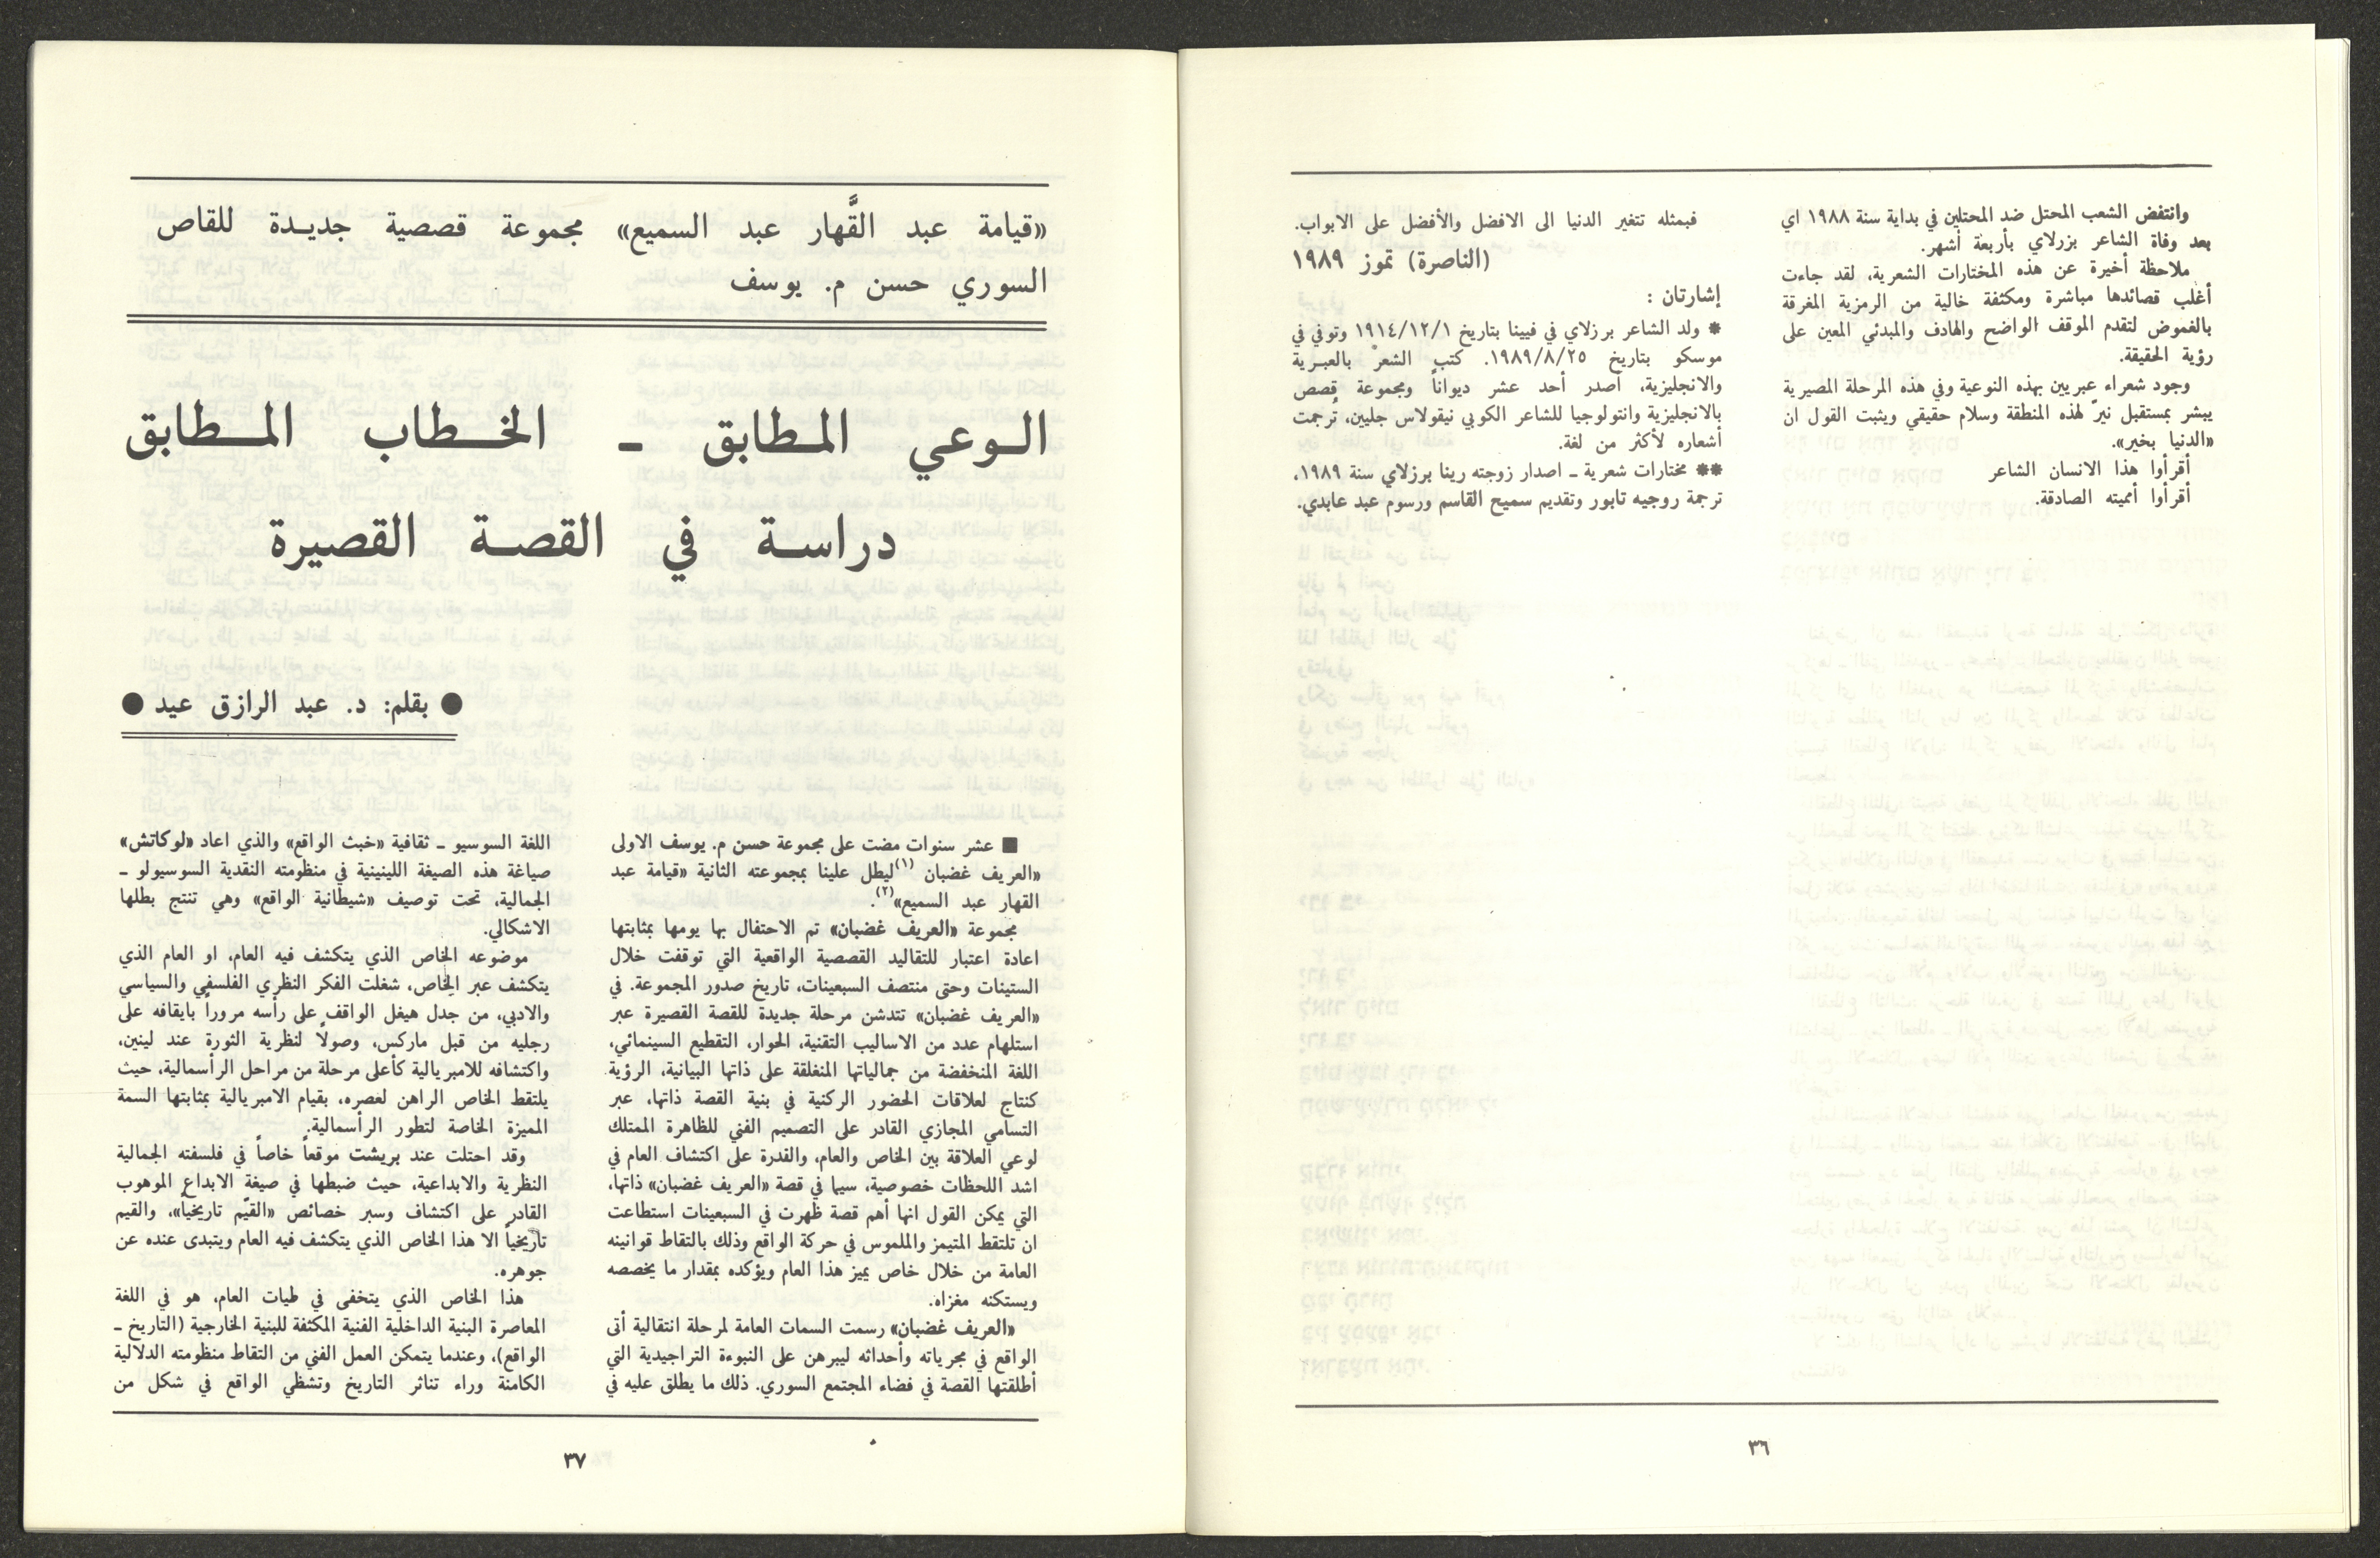 وانتفض الشعب المحتل ضد المحتلين في بداية سنة ١٩٨٨ اي
بعد وفاة الشاعر بزرلاي بأربعة أشهر.
ملاحظة أخيرة عن هذه المختارات الشعرية، لقد جاءت
أغلب قصائدها مباشرة ومكثفة خالية من الرمزية المغرقة
بالغموض لتقدم الموقف الواضح والهادف والمبدئي المعين على
رؤية الحقيقة.
وجود شعراء عبريين بهذه النوعية وفي هذه المرحلة المصيرية
يبشر بمستقبل نيرّ لهذه المنطقة وسلام حقيقي ويثبت القول ان
«الدنيا بخير».
أقرأوا هذا الانسان الشاعر
أقرأوا أمميته الصادقة.
فبمثله تتغير الدنيا الى الافضل والأفضل على الابواب.
(الناصرة) تموز ١٩٨٩
إشارتان :
* ولد الشاعر برزلاي في فيينا بتاريخ ١٩١٤/١٢/١ وتوفي في
موسكو بتاريخ ١٩٨٩/٨/٢٥. كتب الشعر بالعبرية
والانجليزية، أصدر أحد عشر ديواناً ومجموعة قصص
بالانجليزية وانتولوجيا للشاعر الكوبي نيقولاس جليين، تُرجمت
أشعاره لأكثر من لغة.
** مختارات شعرية ـ اصدار زوجته رينا برزلاي سنة ١٩٨٩،
ترجمة روجيه تابور وتقديم سميح القاسم ورسوم عبد عابدي.
٣٦
«قيامة عبد القَّهار عبد السميع» مجموعة قصصية جديـدة للقاص
السوري حسن م. يوسف
الـوعي المـطابق ـ الخـطاب المـطابق
دراسـة في القصـة القصيرة
● بقلم: د. عبد الرازق عيد ●
■ عشر سنوات مضت على مجموعة حسن م. يوسف الاولى
«العريف غضبان (١)ليطل علينا بمجموعته الثانية «قيامة عبد
القهار عبد السميع»(٢).
مجموعة «العريف غضبان» تم الاحتفال بها يومها بمثابتها
اعادة اعتبار للتقاليد القصصية الواقعية التي توقفت خلال
الستينات وحتى منتصف السبعينات، تاريخ صدور المجموعة. في
«العريف غضبان» تتدشن مرحلة جديدة للقصة القصيرة عبر
استلهام عدد من الاساليب التقنية، الحوار، التقطيع السينمائي،
اللغة المنخفضة من جمالياتها المنغلقة على ذاتها البيانية، الرؤية
كنتاج لعلاقات الحضور الركنية في بنية القصة ذاتها، عبر
التسامي المجازي القادر على التصميم الفني للظاهرة الممتلك
لوعي العلاقة بين الخاص والعام، والقدرة على اكتشاف العام في
اشد اللحظات خصوصية، سيما في قصة «العريف غضبان» ذاتها،
التي يمكن القول انها أهم قصة ظهرت في السبعينات استطاعت
ان تلتقط المتيمز والملموس في حركة الواقع وذلك بالتقاط قوانينه
العامة من خلال خاص يميز هذا العام ويؤكده بمقدار ما يخصصه
ويستكنه مغزاه.
«العريف غضبان» رسمت السمات العامة لمرحلة انتقالية أتى
الواقع في مجرياته وأحداثه ليبرهن على النبوءة التراجيدية التي
أطلقتها القصة في فضاء المجتمع السوري. ذلك ما يطلق عليه في
اللغة السوسيو ـ ثقافية «خبث الواقع» والذي اعاد «لوكاتش»
صياغة هذه الصيغة اللينينية في منظومته النقدية السوسيولو ـ
الجمالية، تحت توصيف «شيطانية الواقع» وهي تنتج بطلها
الاشكالي.
موضوعه الخاص الذي يتكشف فيه العام، او العام الذي
يتكشف عبر الخاص، شغلت الفكر النظري الفلسفي والسياسي
والادبي، من جدل هيغل الواقف على رأسه مروراً بايقافه على
رجليه من قبل ماركس، وصولاً لنظرية الثورة عند لينين،
واكتشافه للامبريالية كأعلى مرحلة من مراحل الرأسمالية، حيث
يلتقط الخاص الراهن لعصره، بقيام الامبريالية بمثابتها السمة
المميزة الخاصة لتطور الرأسمالية.
وقد احتلت عند بريشت موقعاً خاصاً في فلسفته الجمالية
النظرية والابداعية، حيث ضبطها في صيغة الابداع الموهوب
القادر على اكتشاف وسبر خصائص «القيّم تاريخياً»، والقيم
تاريخياً الا هذا الخاص الذي يتكشف فيه العام ويتبدى عنده عن
جوهره.
هذا الخاص الذي يتخفى في طيات العام، هو في اللغة
المعاصرة البنية الداخلية الفنية المكثفة للبنية الخارجية (التاريخ ـ
الواقع)، وعندما يتمكن العمل الفني من التقاط منظومته الدلالية
الكامنة وراء تناثر التاريخ وتشظي الواقع في شكل من
٣٧